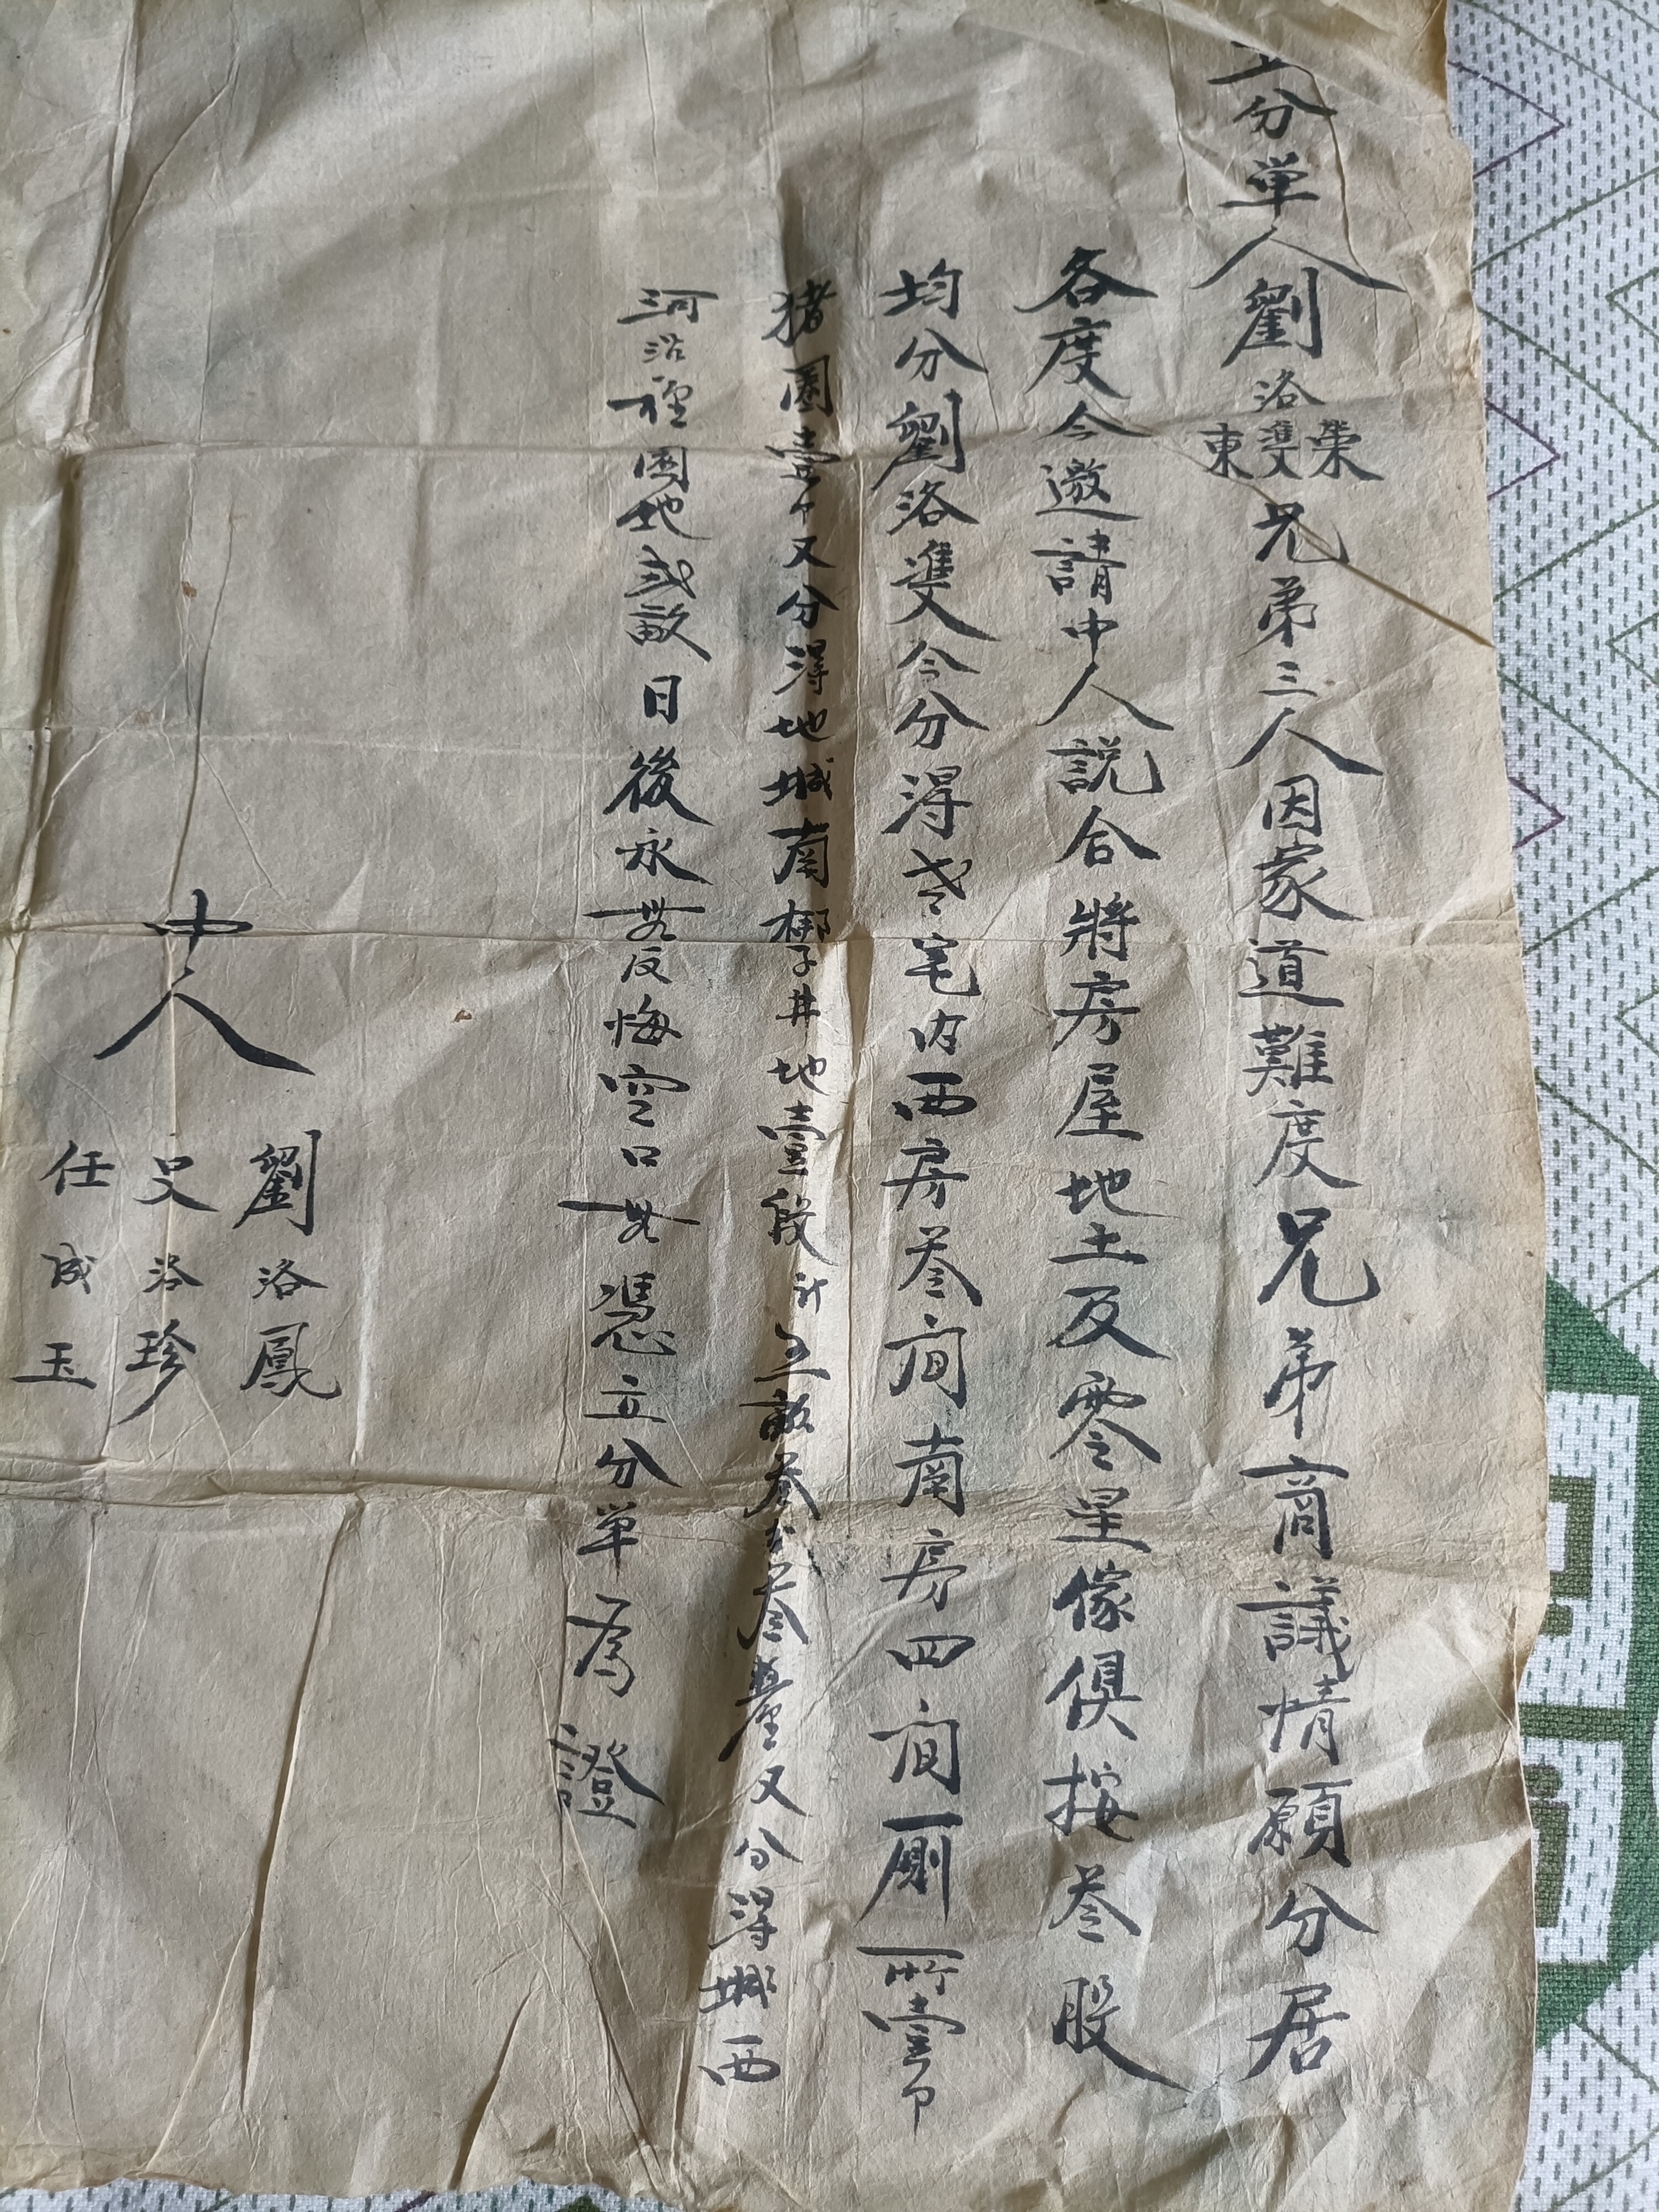 立分单人劉洛榮雙東兄弟三人因家道難度兄弟商議情願分居
各度今邀請中人説合將房屋地土及零星傢俱按叁股
均分劉洛雙今分得老宅内西房叁间南房四间厠所壹个
猪圈壹个又分得地城南梆子井地壹段計五畝叁分叁釐又分得城西
河沿裡園地弍畝日後永無反悔空口無憑立分单為證
中人
劉洛鳳
史洛珍
任成玉